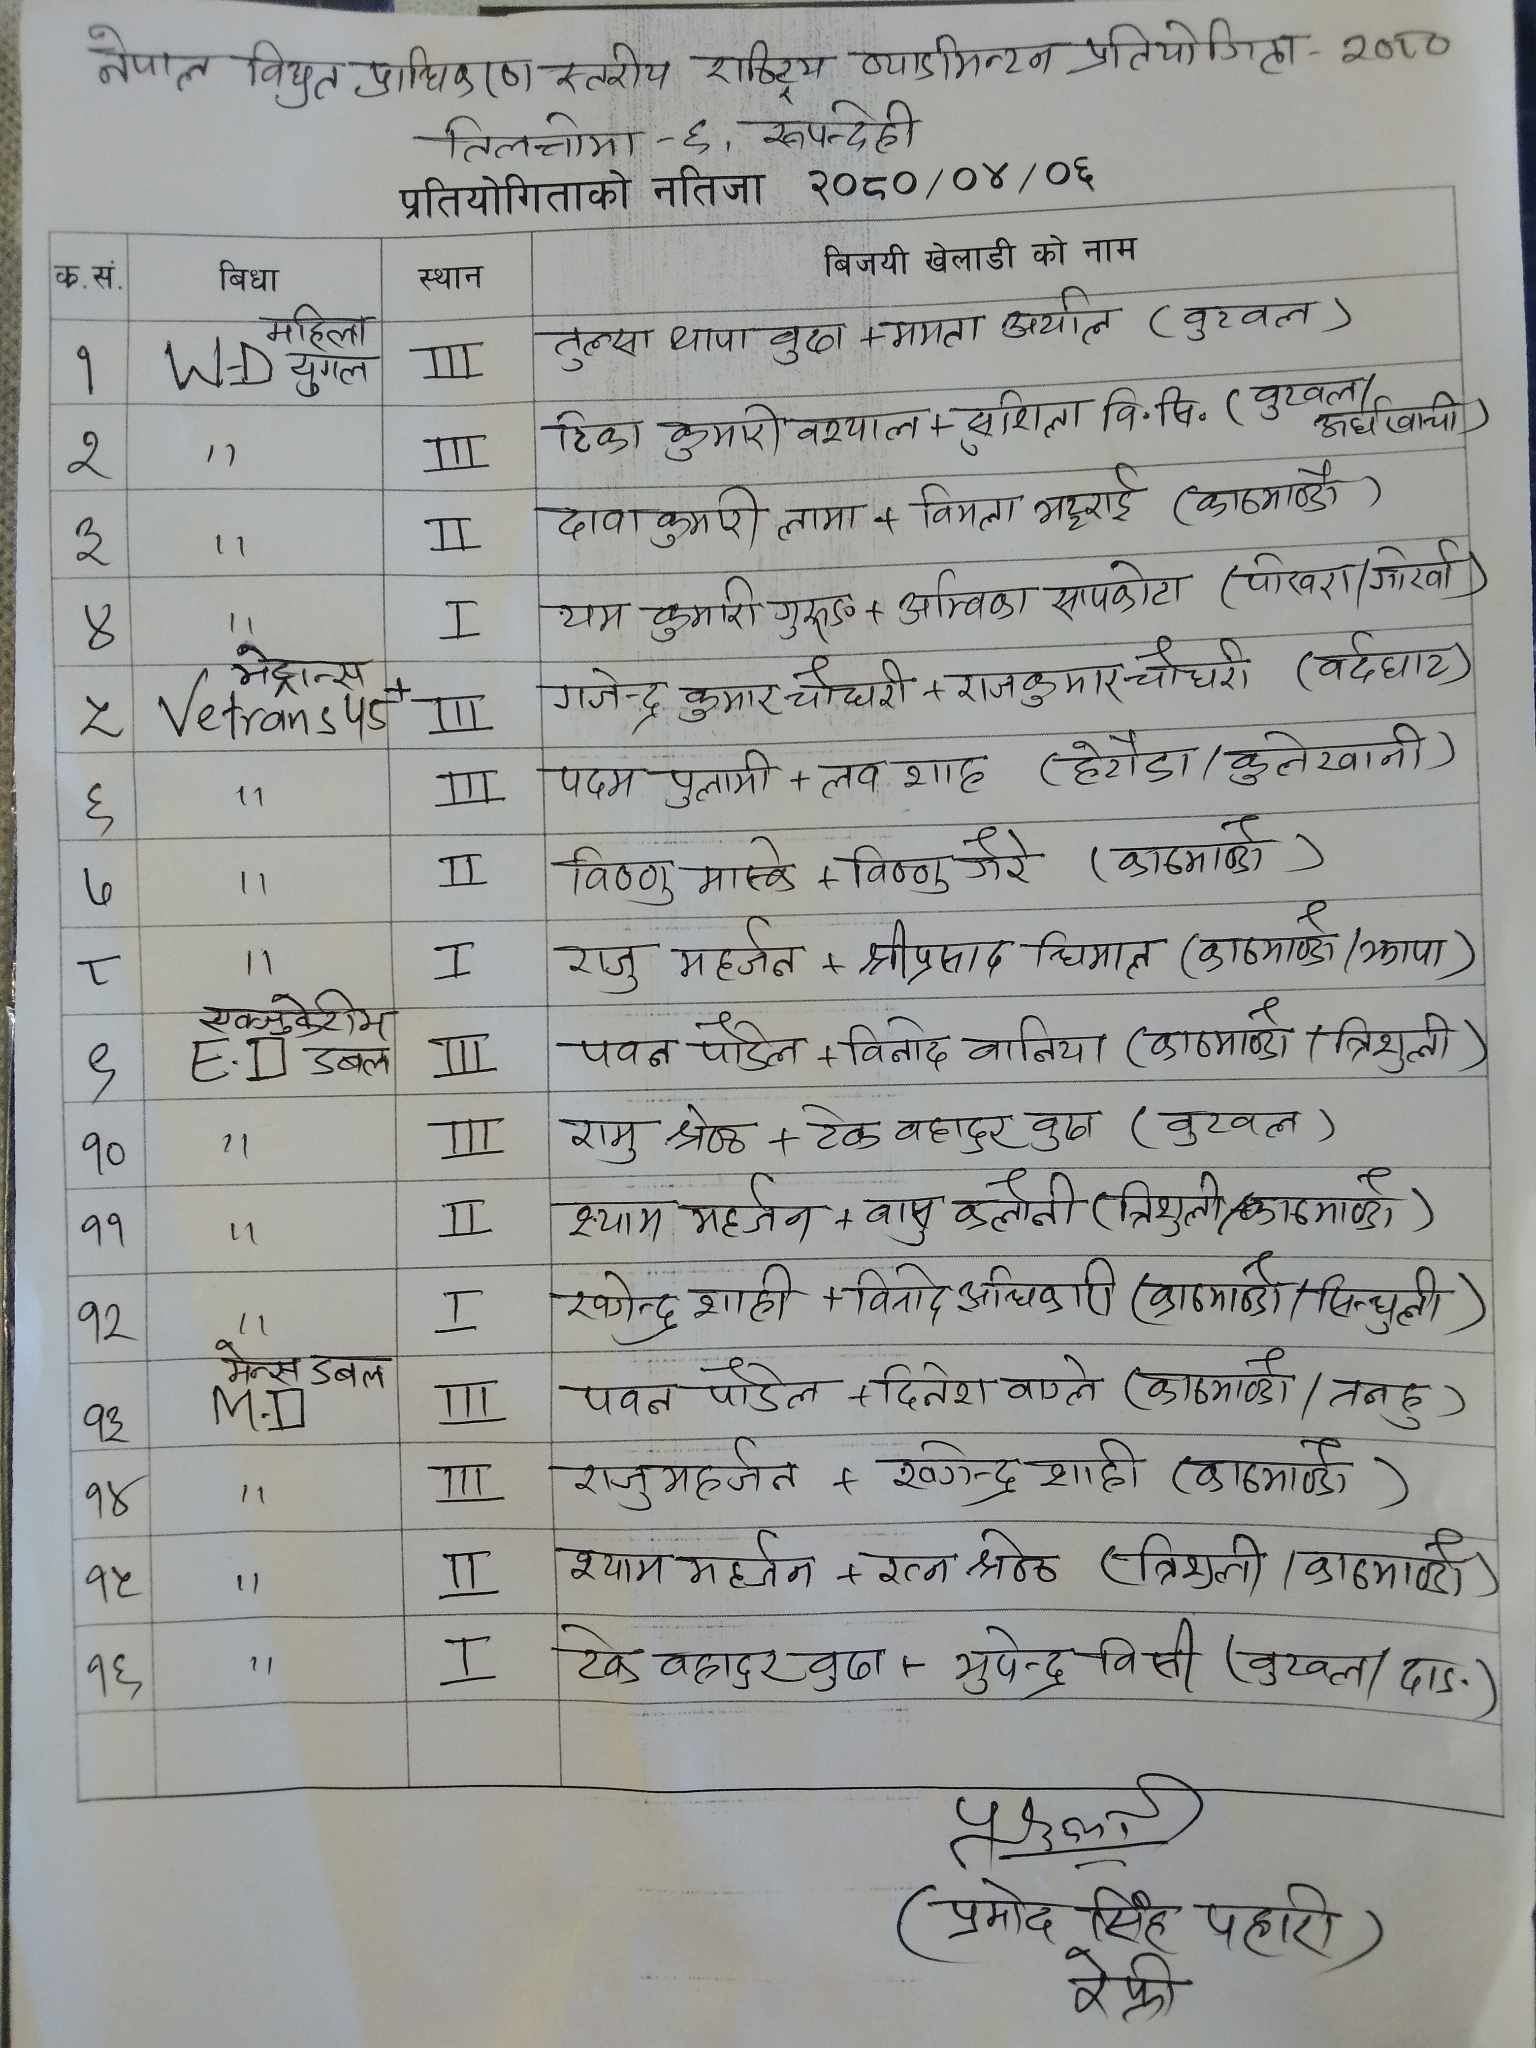 नेपाल विधुत प्राधिकरण स्तरीय राष्ट्रिय व्याडमिन्टन प्रतियोगिता - २०८०
तिलोत्तमा - ६, रुपन्देही
प्रतियोगिताको नतिजा २०८०/०४/०६
क.सं. बिधा स्थान बिजयी खेलाडी को नाम
१ W-D महिला युगल III तुल्सा थापा वुढा + ममता अर्याल (वुटवल)
२ " III टिका कुमारी वश्याल + सुशिला वि.सि. (वुटवल/अर्घाखाची)
३ " II दावा कुमारी लामा + विमला भट्टराई (काठमाण्डौ)
४ " I यम कुमारी गुरुङ + अम्विका सापकोटा (पोखरा/गोर्खा)
५ भेट्रान्स Vetrans 45+ III गजेन्द्र कुमार चौधरी + राजकुमार चौधरी (वर्दघाट)
६ " III पदम पुलामी + लव शाह (हेटौडा/कुलेखानी)
७ " II विष्णु मास्के + विष्णु जैरे (काठमाण्डौ)
८ " I राजु महर्जन + श्रीप्रसाद धिमाल (काठमाण्डौ/झापा)
९ एक्जुकेटीभ E.D डबल III पवन पौडेल + विनोद वानिया (काठमाण्डौ/त्रिशुली)
१० " III रामु श्रेष्ठ + टेक वहादुर वुढा (वुटवल)
११ " II श्याम महर्जन + वासु कलौनी (त्रिशुली/काठमाण्डौ)
१२ " I खगेन्द्र शाही + विनोद अधिकारी (काठमाण्डौ/सिन्धुली)
१३ मेन्स डबल M.D III पवन पौडेल + दिनेश वाग्ले (काठमाण्डौ/तनहु)
१४ " III राजु महर्जन + खगेन्द्र शाही (काठमाण्डौ)
१५ " II श्याम महर्जन + रत्न श्रेष्ठ (त्रिशुली/काठमाण्डौ)
१६ " I टेक वहादुर वुढा + भुपेन्द्र वि सी (वुटवल/दाङ.)
(प्रमोद सिंह पहारी)
रेफ्री